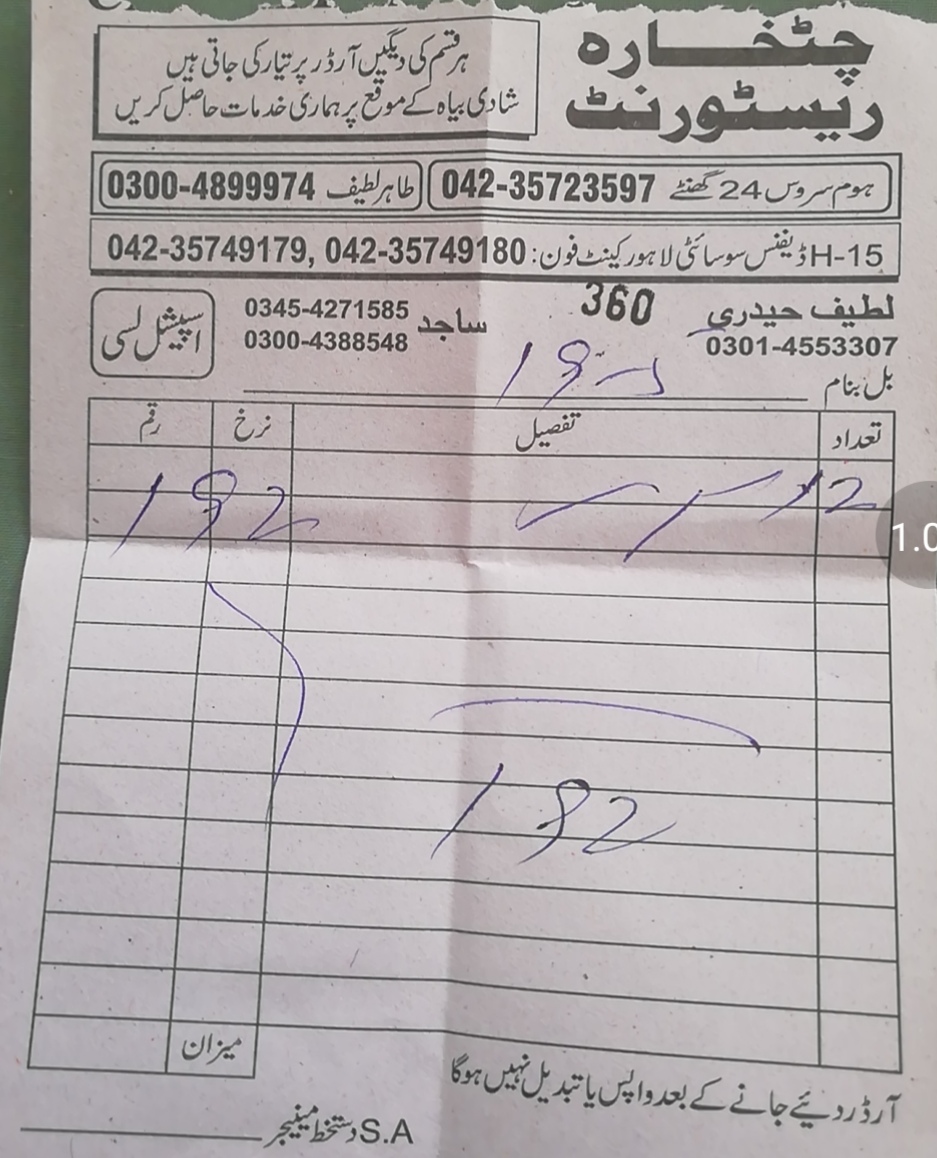 چٹخارہ
ریسٹورنٹ
ہر قسم کی دیگیں آرڈر پر تیار کی جاتی ہیں
شادی بیاہ کے موقع پر ہماری خدمات حاصل کریں
ہوم سروس 24 گھنٹے 042-35723597
طاہر لطیف 0300-4899974
H-15 ڈیفنس سوسائٹی لاہور کینٹ فون: 042-35749180 ,042-35749179
لطیف حیدری
0301-4553307
360
ساجد 0345-4271585
0300-4388548
اسپیشل لسی
بل بنام
تعداد تفصیل نرخ رقم
12 192
192
میزان
آرڈر دیئے جانے کے بعد واپس یا تبدیل نہیں ہوگا
S.A دستخط مینیجر
1.0